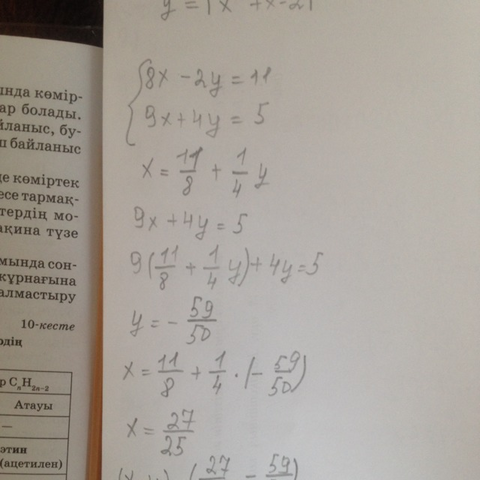 y = |x² + x - 2|
ында көмір-
ар болады.
йланыс, бу-
ш байланыс
де көміртек
есе тармақ-
тердің мо-
ақина түзе
мында сон-
жұрнағына
алмастыру
10-кесте
рдің
р CₙH₂ₙ₋₂
Атауы
—
этин
(ацетилен)
{8x - 2y = 11
9x + 4y = 5
x = 11/8 + 1/4 y
9x + 4y = 5
9(11/8 + 1/4 y) + 4y = 5
y = - 59/50
x = 11/8 + 1/4 · (- 59/50)
x = 27/25
(x, y) (27 - 59)